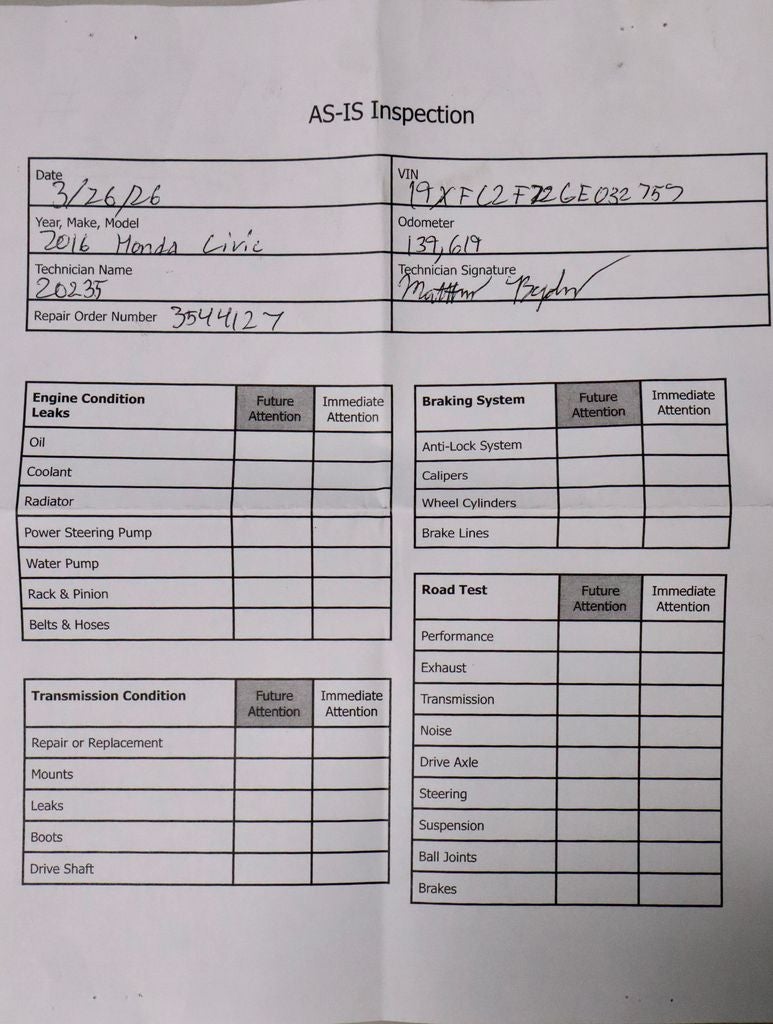 AS-IS Inspection
Date
3/26/26
VIN
19XFC2F72GE032757
Year, Make, Model
2016 Honda Civic
Odometer
139,619
Technician Name
20235
Technician Signature
Matthew
Repair Order Number 3544127
Engine Condition
Leaks
Future
Attention
Immediate
Attention
Oil
Coolant
Radiator
Power Steering Pump
Water Pump
Rack & Pinion
Belts & Hoses
Transmission Condition
Future
Attention
Immediate
Attention
Repair or Replacement
Mounts
Leaks
Boots
Drive Shaft
Braking System
Future
Attention
Immediate
Attention
Anti-Lock System
Calipers
Wheel Cylinders
Brake Lines
Road Test
Future
Attention
Immediate
Attention
Performance
Exhaust
Transmission
Noise
Drive Axle
Steering
Suspension
Ball Joints
Brakes